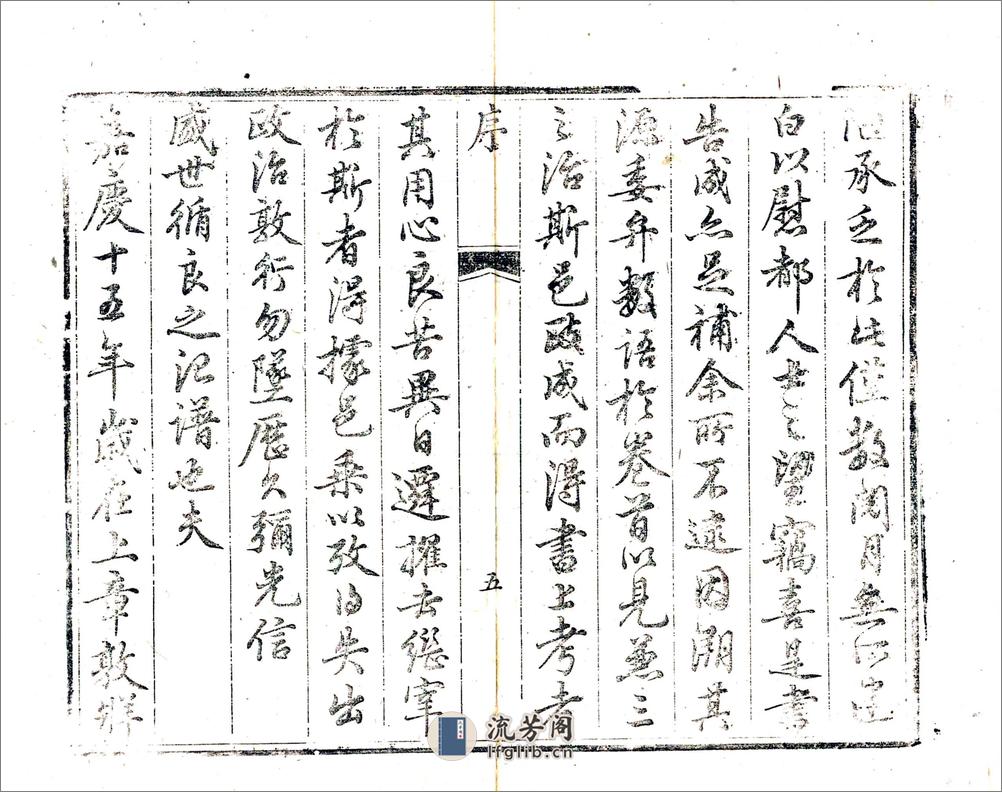 承乏於此僅數閱月無所建
白以慰都人士之望竊喜是書
告成亦足補余所不逮因溯其
源委弁數語於卷首以見兼三
之治斯邑政成而得書上考者
序
五
其用心良苦異日遷擢去繼室
於斯者得據邑乘以攷得失出
政治敦行勿墜歷久彌光信
盛世循良之治譜也夫
嘉慶十五年歲在上章敦牂
流芳阁
lfglib.cn